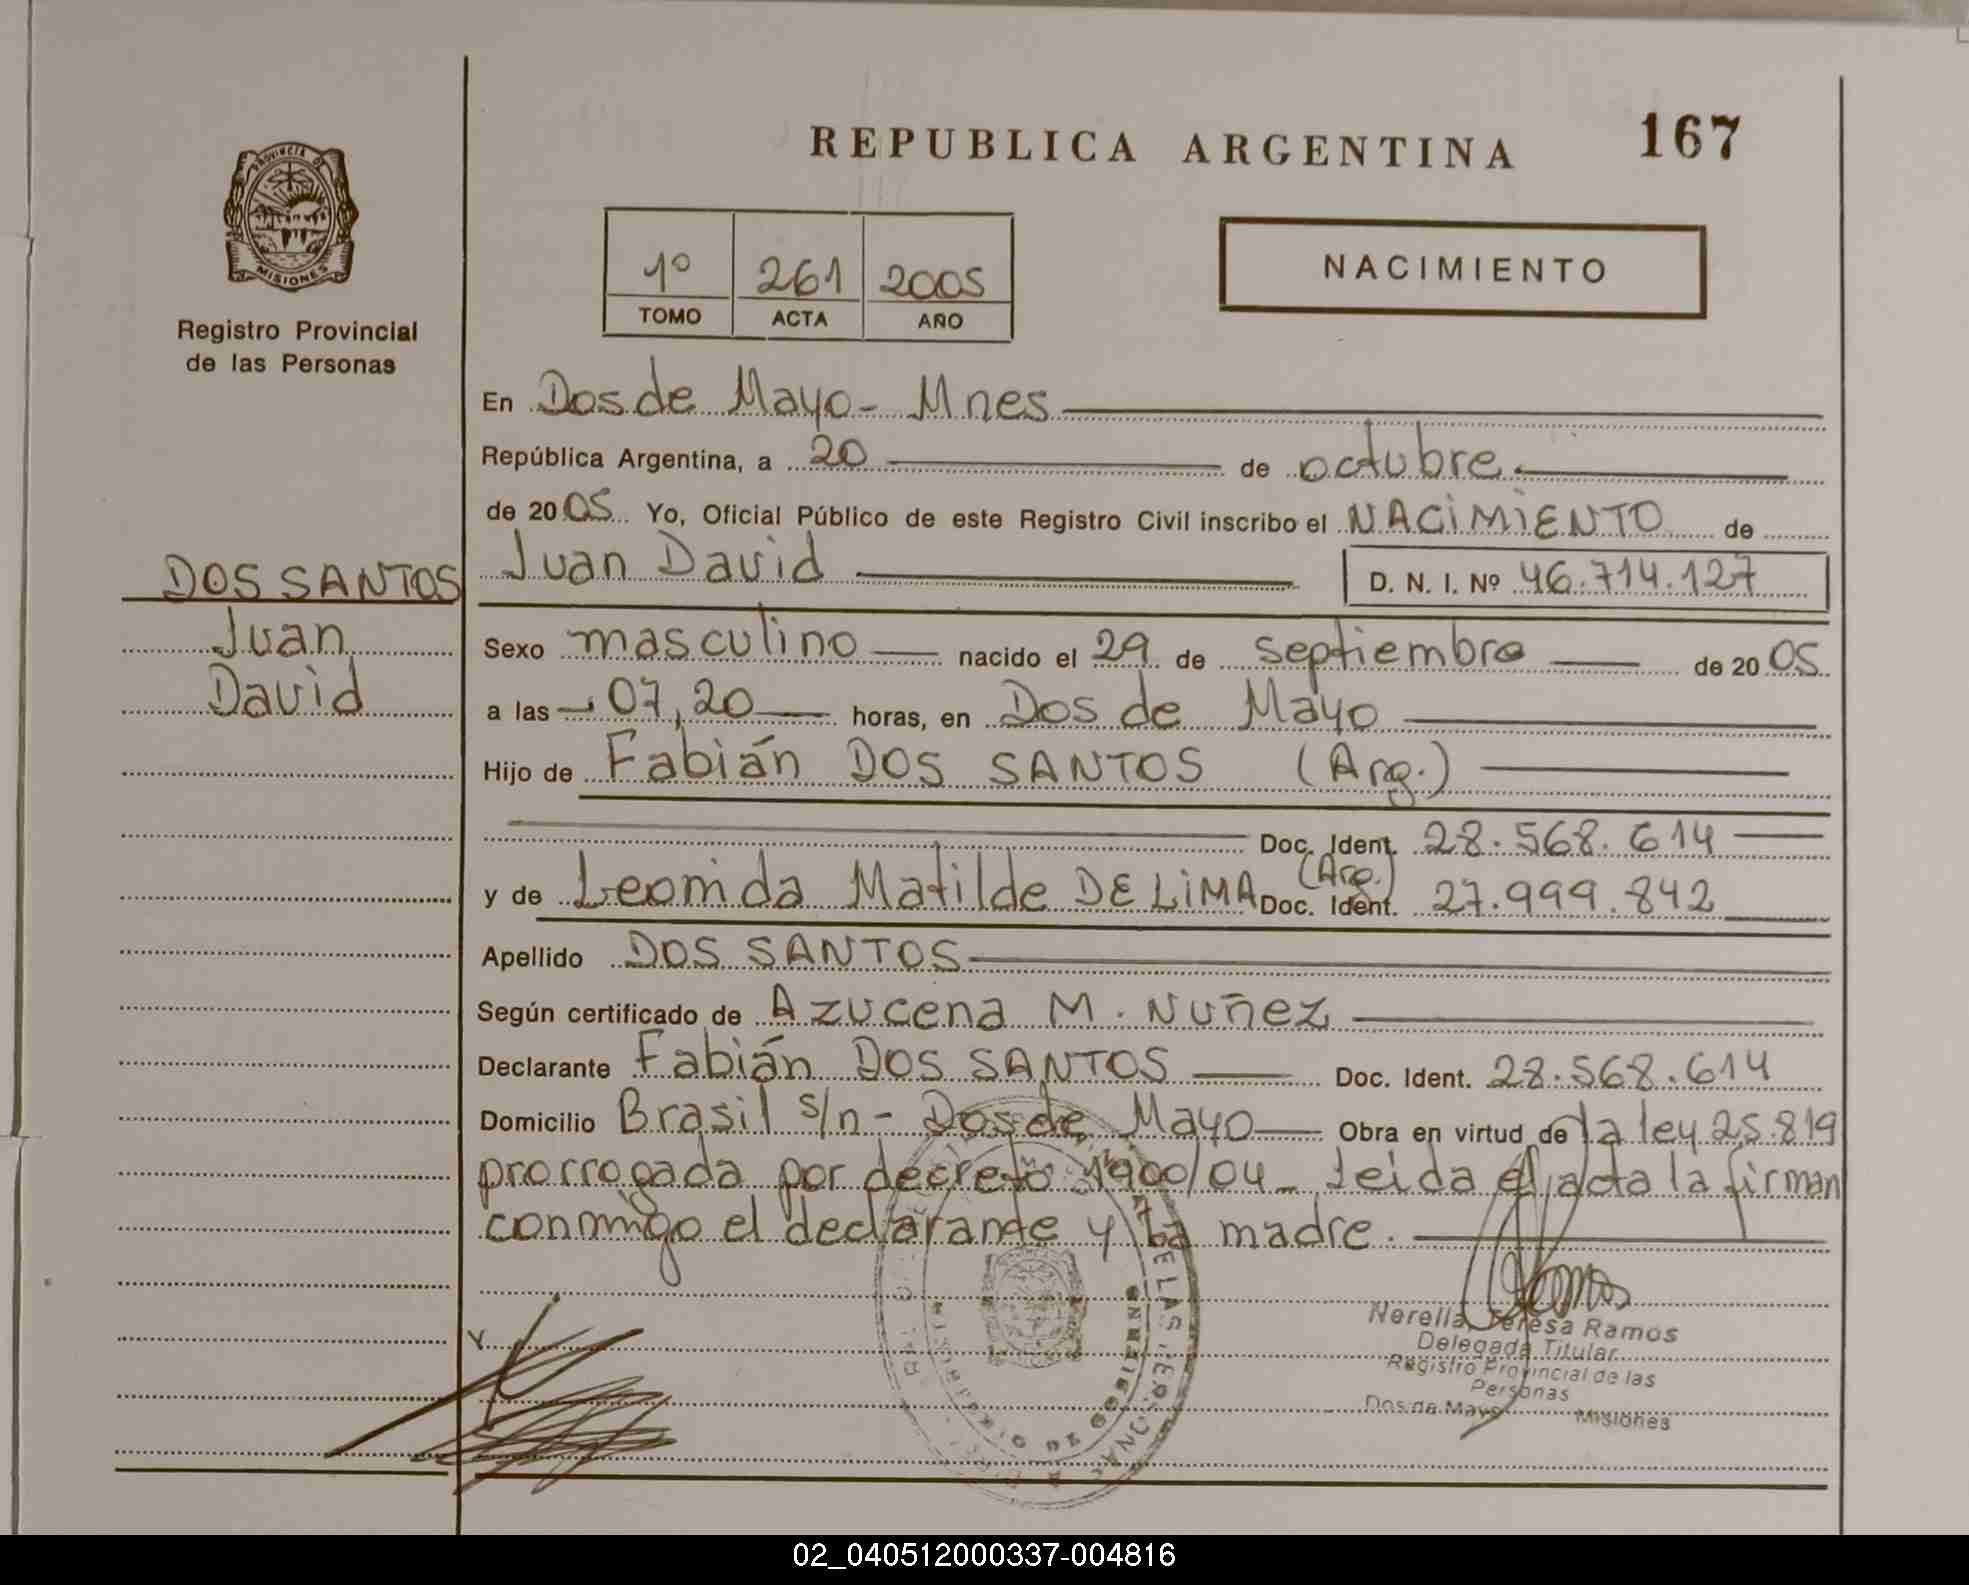 REPUBLICA ARGENTINA 167
PROVINCIA DE
MISIONES
Registro Provincial
de las Personas
1º 261 2005
TOMO ACTA AÑO
NACIMIENTO
En Dos de Mayo - Mnes
República Argentina, a 20 de octubre.
de 2005 Yo, Oficial Público de este Registro Civil inscribo el NACIMIENTO de
Juan David D. N. I. Nº 46.714.127
DOS SANTOS
Juan
David
Sexo masculino nacido el 29 de septiembre de 2005
a las 07,20 horas, en Dos de Mayo
Hijo de Fabián DOS SANTOS (Arg.)
Doc. Ident. 28.568.614
y de Leonida Matilde DE LIMA (Arg.) Doc. Ident. 27.999.842
Apellido DOS SANTOS
Según certificado de Azucena M. Nuñez
Declarante Fabián DOS SANTOS Doc. Ident. 28.568.614
Domicilio Brasil s/n - Dos de Mayo Obra en virtud de la ley 25.819
prorrogada por decreto 1900/04_ Leida el acta la firman
conmigo el declarante y la madre.
Nerella Teresa Ramos
Delegada Titular
Registro Provincial de las
Personas
Dos de Mayo Misiones
02_040512000337-004816